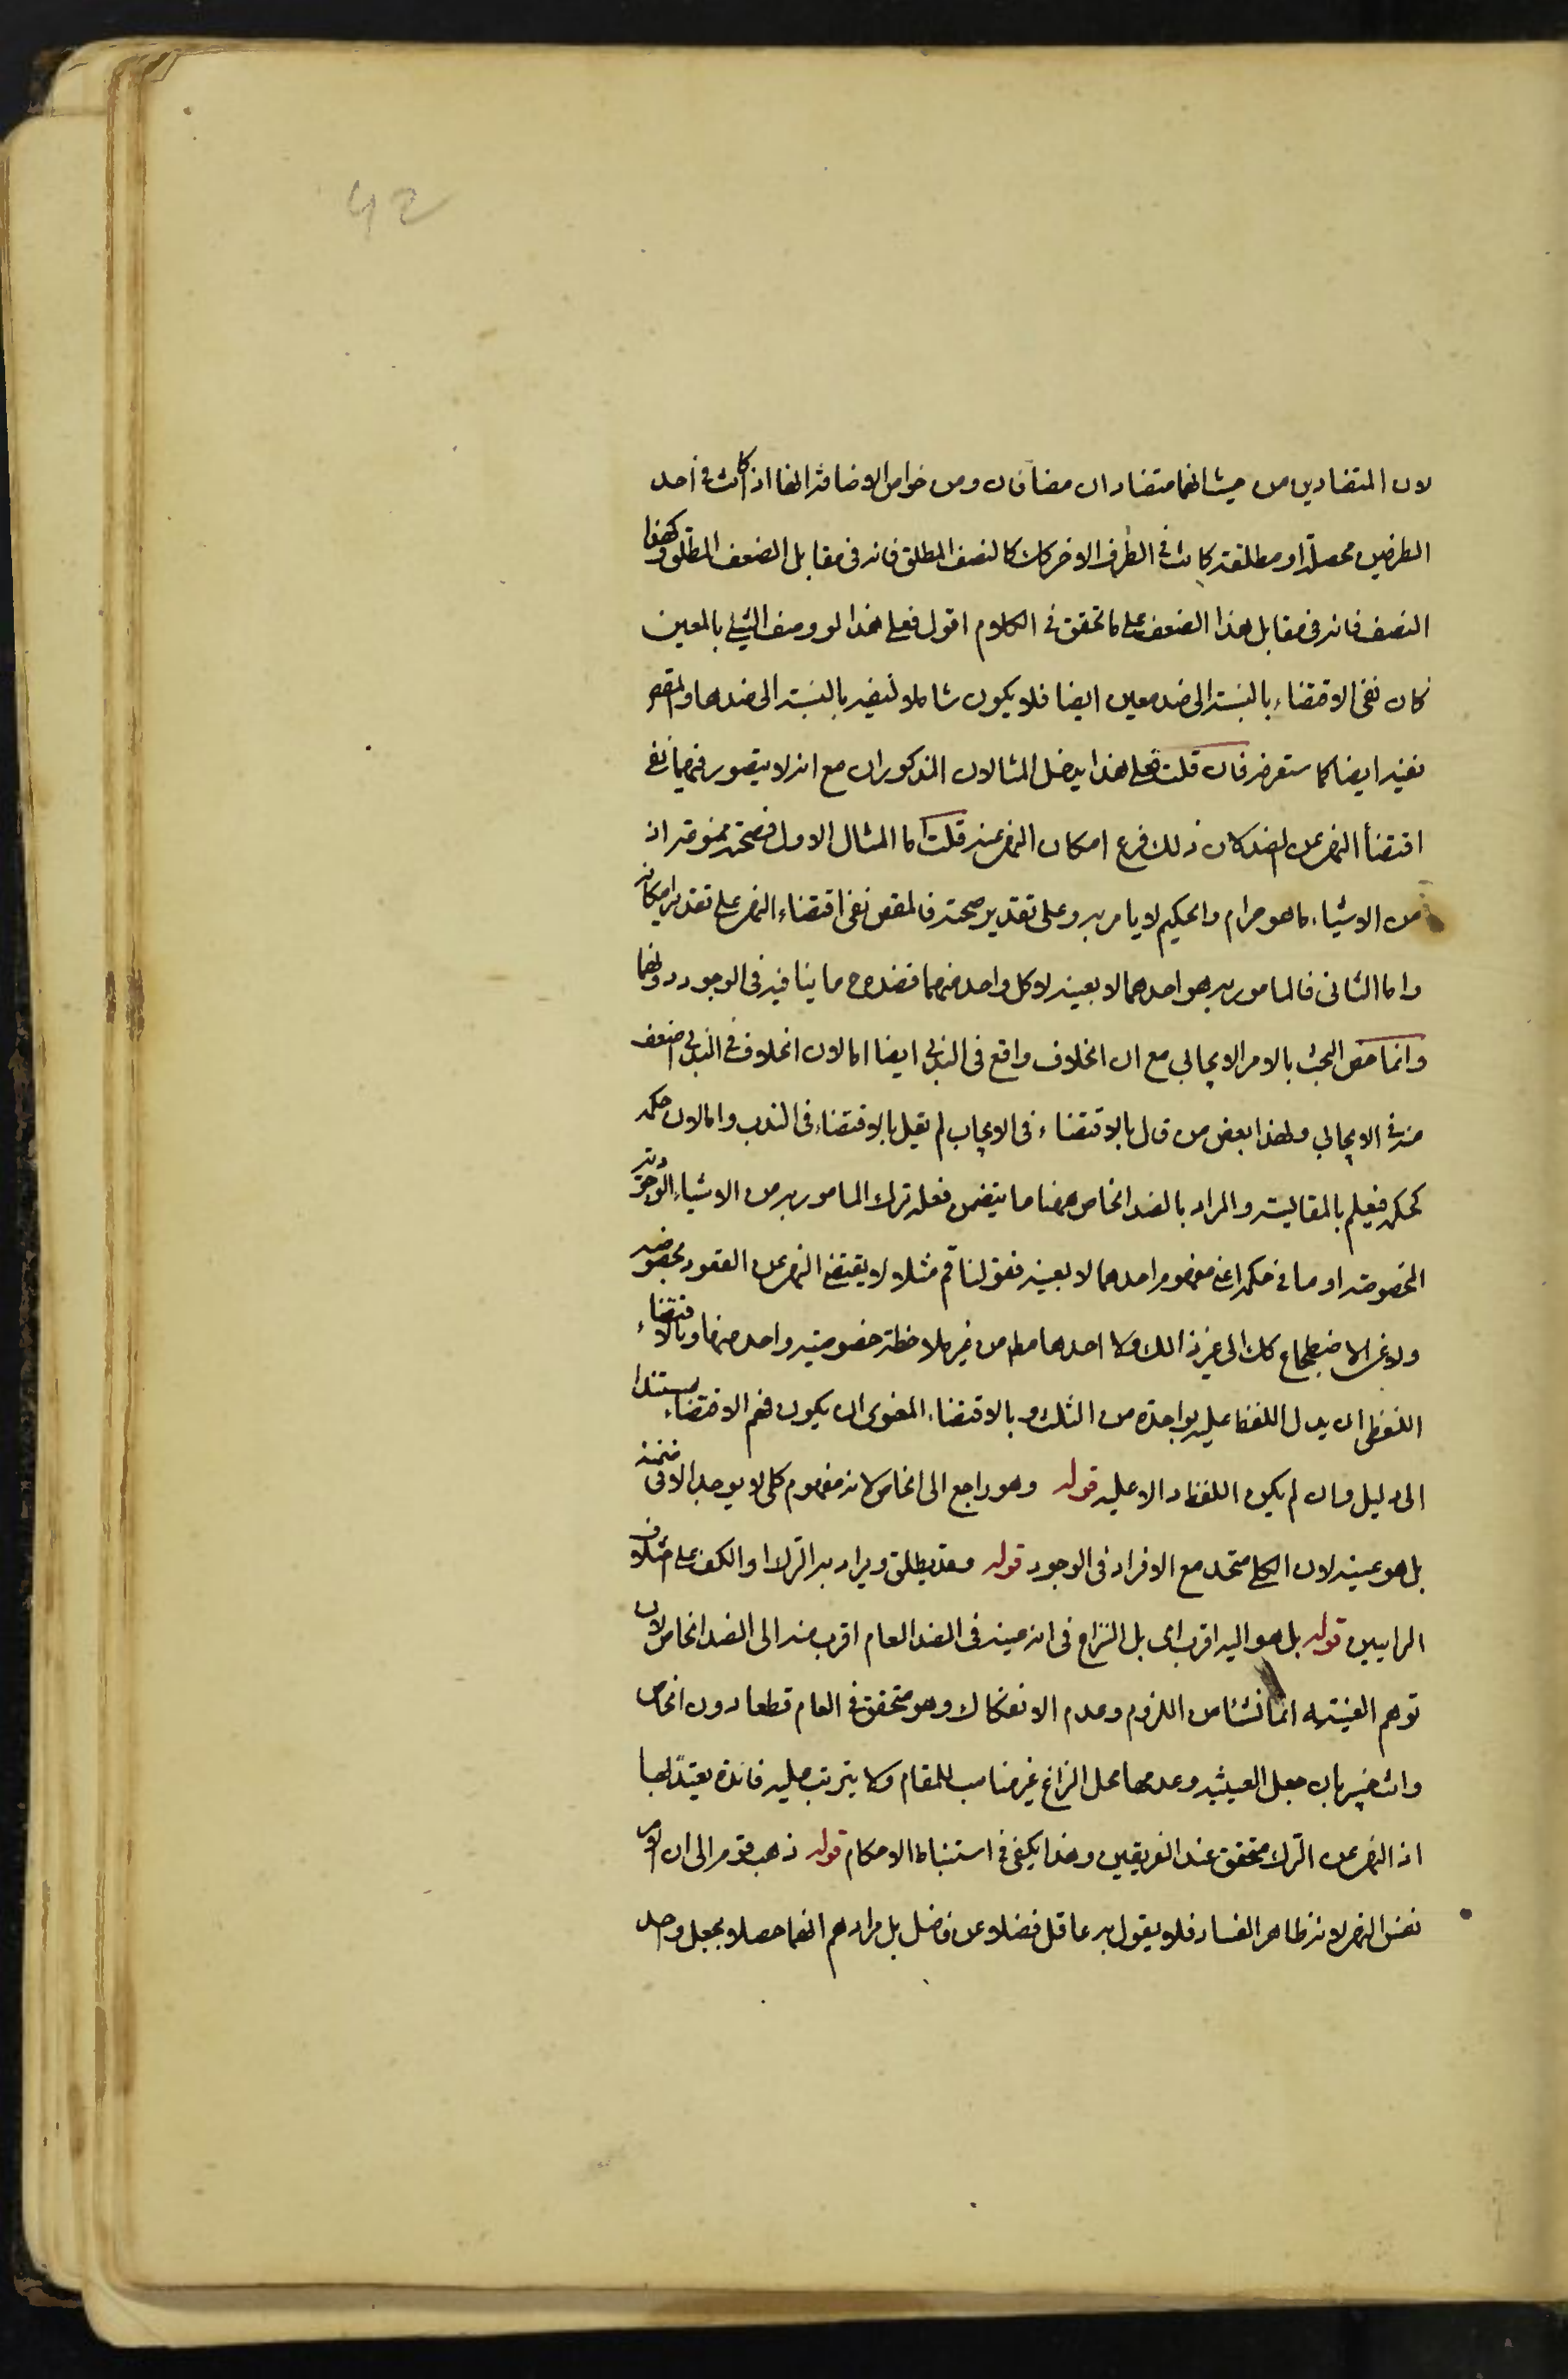 42
لان المتضادين من حيث انهما متضادان مضافان ومن خواص الاضافة انها اذا كانت في احد
الطرفين محصلة او مطلقة كانت في الطرف الاخر كك كالنصف المطلق فانه في مقابل الضعف المطلق وكهذا
النصف فانه في مقابل هذا الضعف على ما تحقق في الكلام اقول فعلى هذا لو وصف الشيء بالمعين
كان نفي الاقتضاء بالنسبة الى ضد معين ايضا فلا يكون شاملا لنفيه بالنسبة الى ضدها والمقص
نفيه ايضا كما ستعرفه فان قلت فعلى هذا يدخل المثالان المذكوران مع انه لا يتصور فيهما نفي
اقتضا النهي عن الضد لان ذلك فرع امكان النهي عنه قلت اما المثال الاول فصحته ممنوعة اذ
من الاشياء ما هو حرام والحكيم لا يامر به وعلى تقدير صحته فالمقص نفي اقتضاء النهي على تقدير امكانه
واما الثاني فالمامور به هو احدهما لا بعينه لا كل واحد منهما فضده ح ما ينافيه في الوجود دونهما
وانما خص البحث بالامر الايجابي مع ان الخلاف واقع في الندبي ايضا اما لان الخلاف في الندبي اضعف
منه في الايجابي ولهذا بعض من قال بالاقتضاء في الايجاب لم يقل بالاقتضاء في الندب واما لان حكمه
كحكمه فيعلم بالمقايسة والمراد بالضد الخاص ههنا ما يتضمن فعله ترك المامور به من الاشياء الوجودية
المخصوصة او ما في حكمها اعني مفهوم احدها لا بعينه فقولنا قم مثلا لا يقتضي النهي عن القعود بخصوصه
ولا عن الاضطجاع كك الى غير ذالك ولا احدها مط من غير ملاحظة خصوصية واحد منها وبالاقتضاء
اللفظي ان يدل اللفظ عليه بواحدة من الثلث وبالاقتضاء المعنوي ان يكون فهم الاقتضاء مستندا
الى دليل وان لم يكن اللفظ دالا عليه قوله وهو راجع الى الخاص لانه مفهوم كلي لا يوجد الا في ضمنه
بل هو عينه لان الكلي متحد مع الافراد في الوجود قوله وقد يطلق ويراد به الترك او الكف على اختلاف
الرايين قوله بل هو اليه اقرب اى بل النزاع في انه عينه في الضد العام اقرب منه الى الضد الخاص لان
توهم العينية انما نشا من اللزوم وعدم الانفكاك وهو متحقق في العام قطعا دون الخاص
وانت خبير بان جعل العينية وعدمها محل النزاع غير مناسب للمقام ولا يترتب عليه فائدة يعتد بها
اذ النهي عن الترك متحقق عند الفريقين وهذا يكفي في استنباط الاحكام قوله ذهب قوم الى ان الامر
نفس النهي لانه ظاهر الفساد فلا يقول به عاقل فضلا عن فاضل بل مرادهم انهما حصلا بجعل واحد